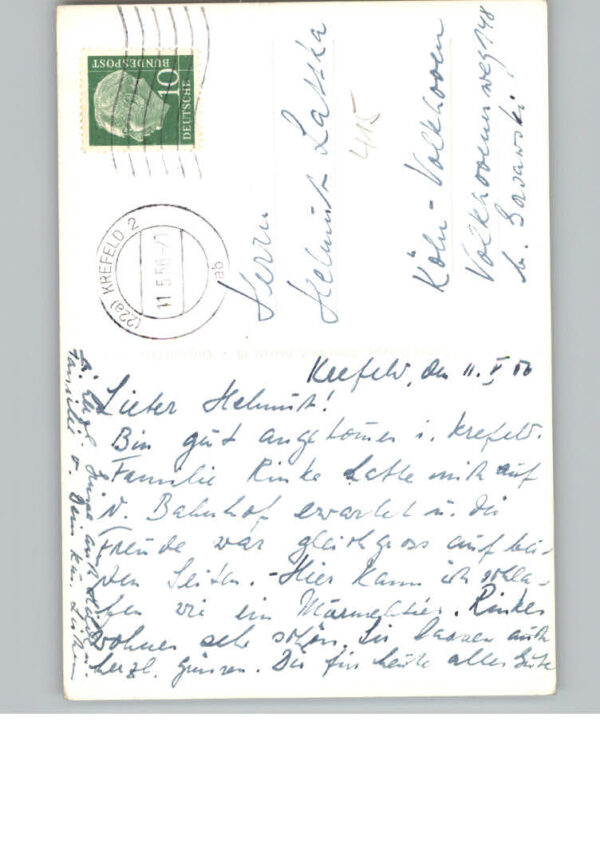 DEUTSCHE
BUNDESPOST
10
(22a) KREFELD 2
11.5.56
ab
Herrn
Helmut Latska
415
Köln-Volkhoven
Volkhovenerweg 148
b.
Krefeld, den 11. V 56
Lieber Helmut!
Bin gut angekommen i. Krefeld.
Familie Rinke hatte mich auf
d. Bahnhof erwartet u. die
Freude war gleichgross auf bei-
den Seiten. - Hier kann ich schla-
fen wie ein Murmeltier. Rinkes
wohnen sehr schön. Sie lassen auch
herzl. grüssen. Dir für heute alles Gute